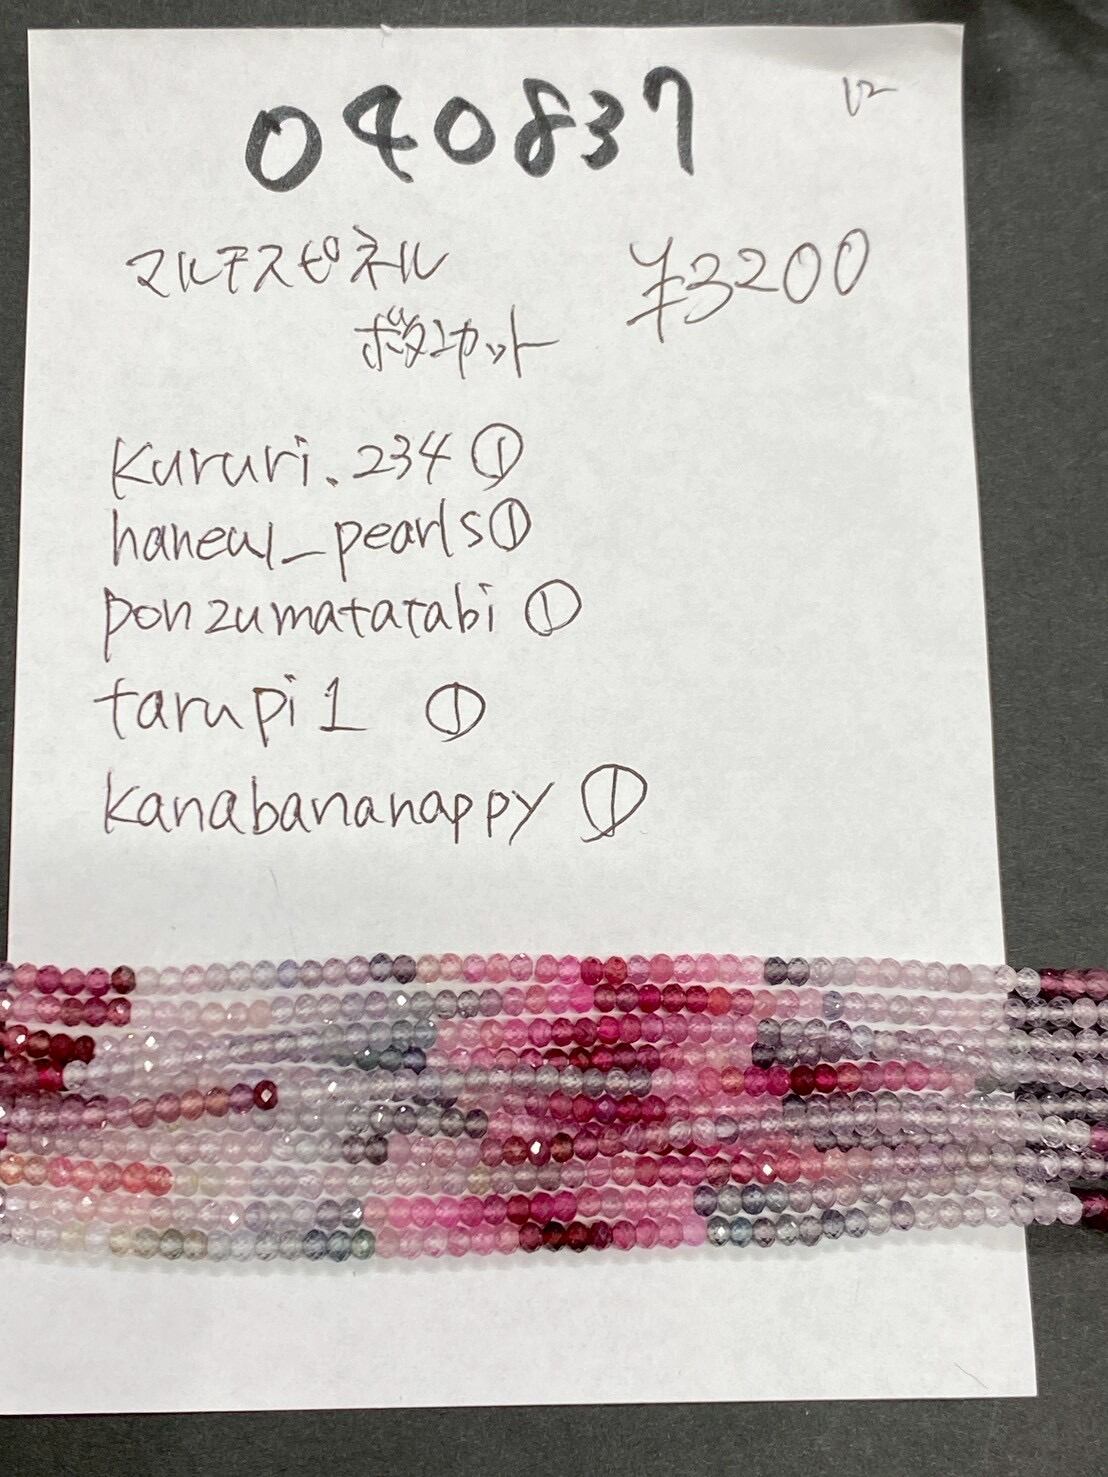 040837
マルチスピネル ¥3200
ボタンカット
kururi.234 ①
haneul_pearls ①
ponzumatatabi ①
tarupi1 ①
kanabananappy ①